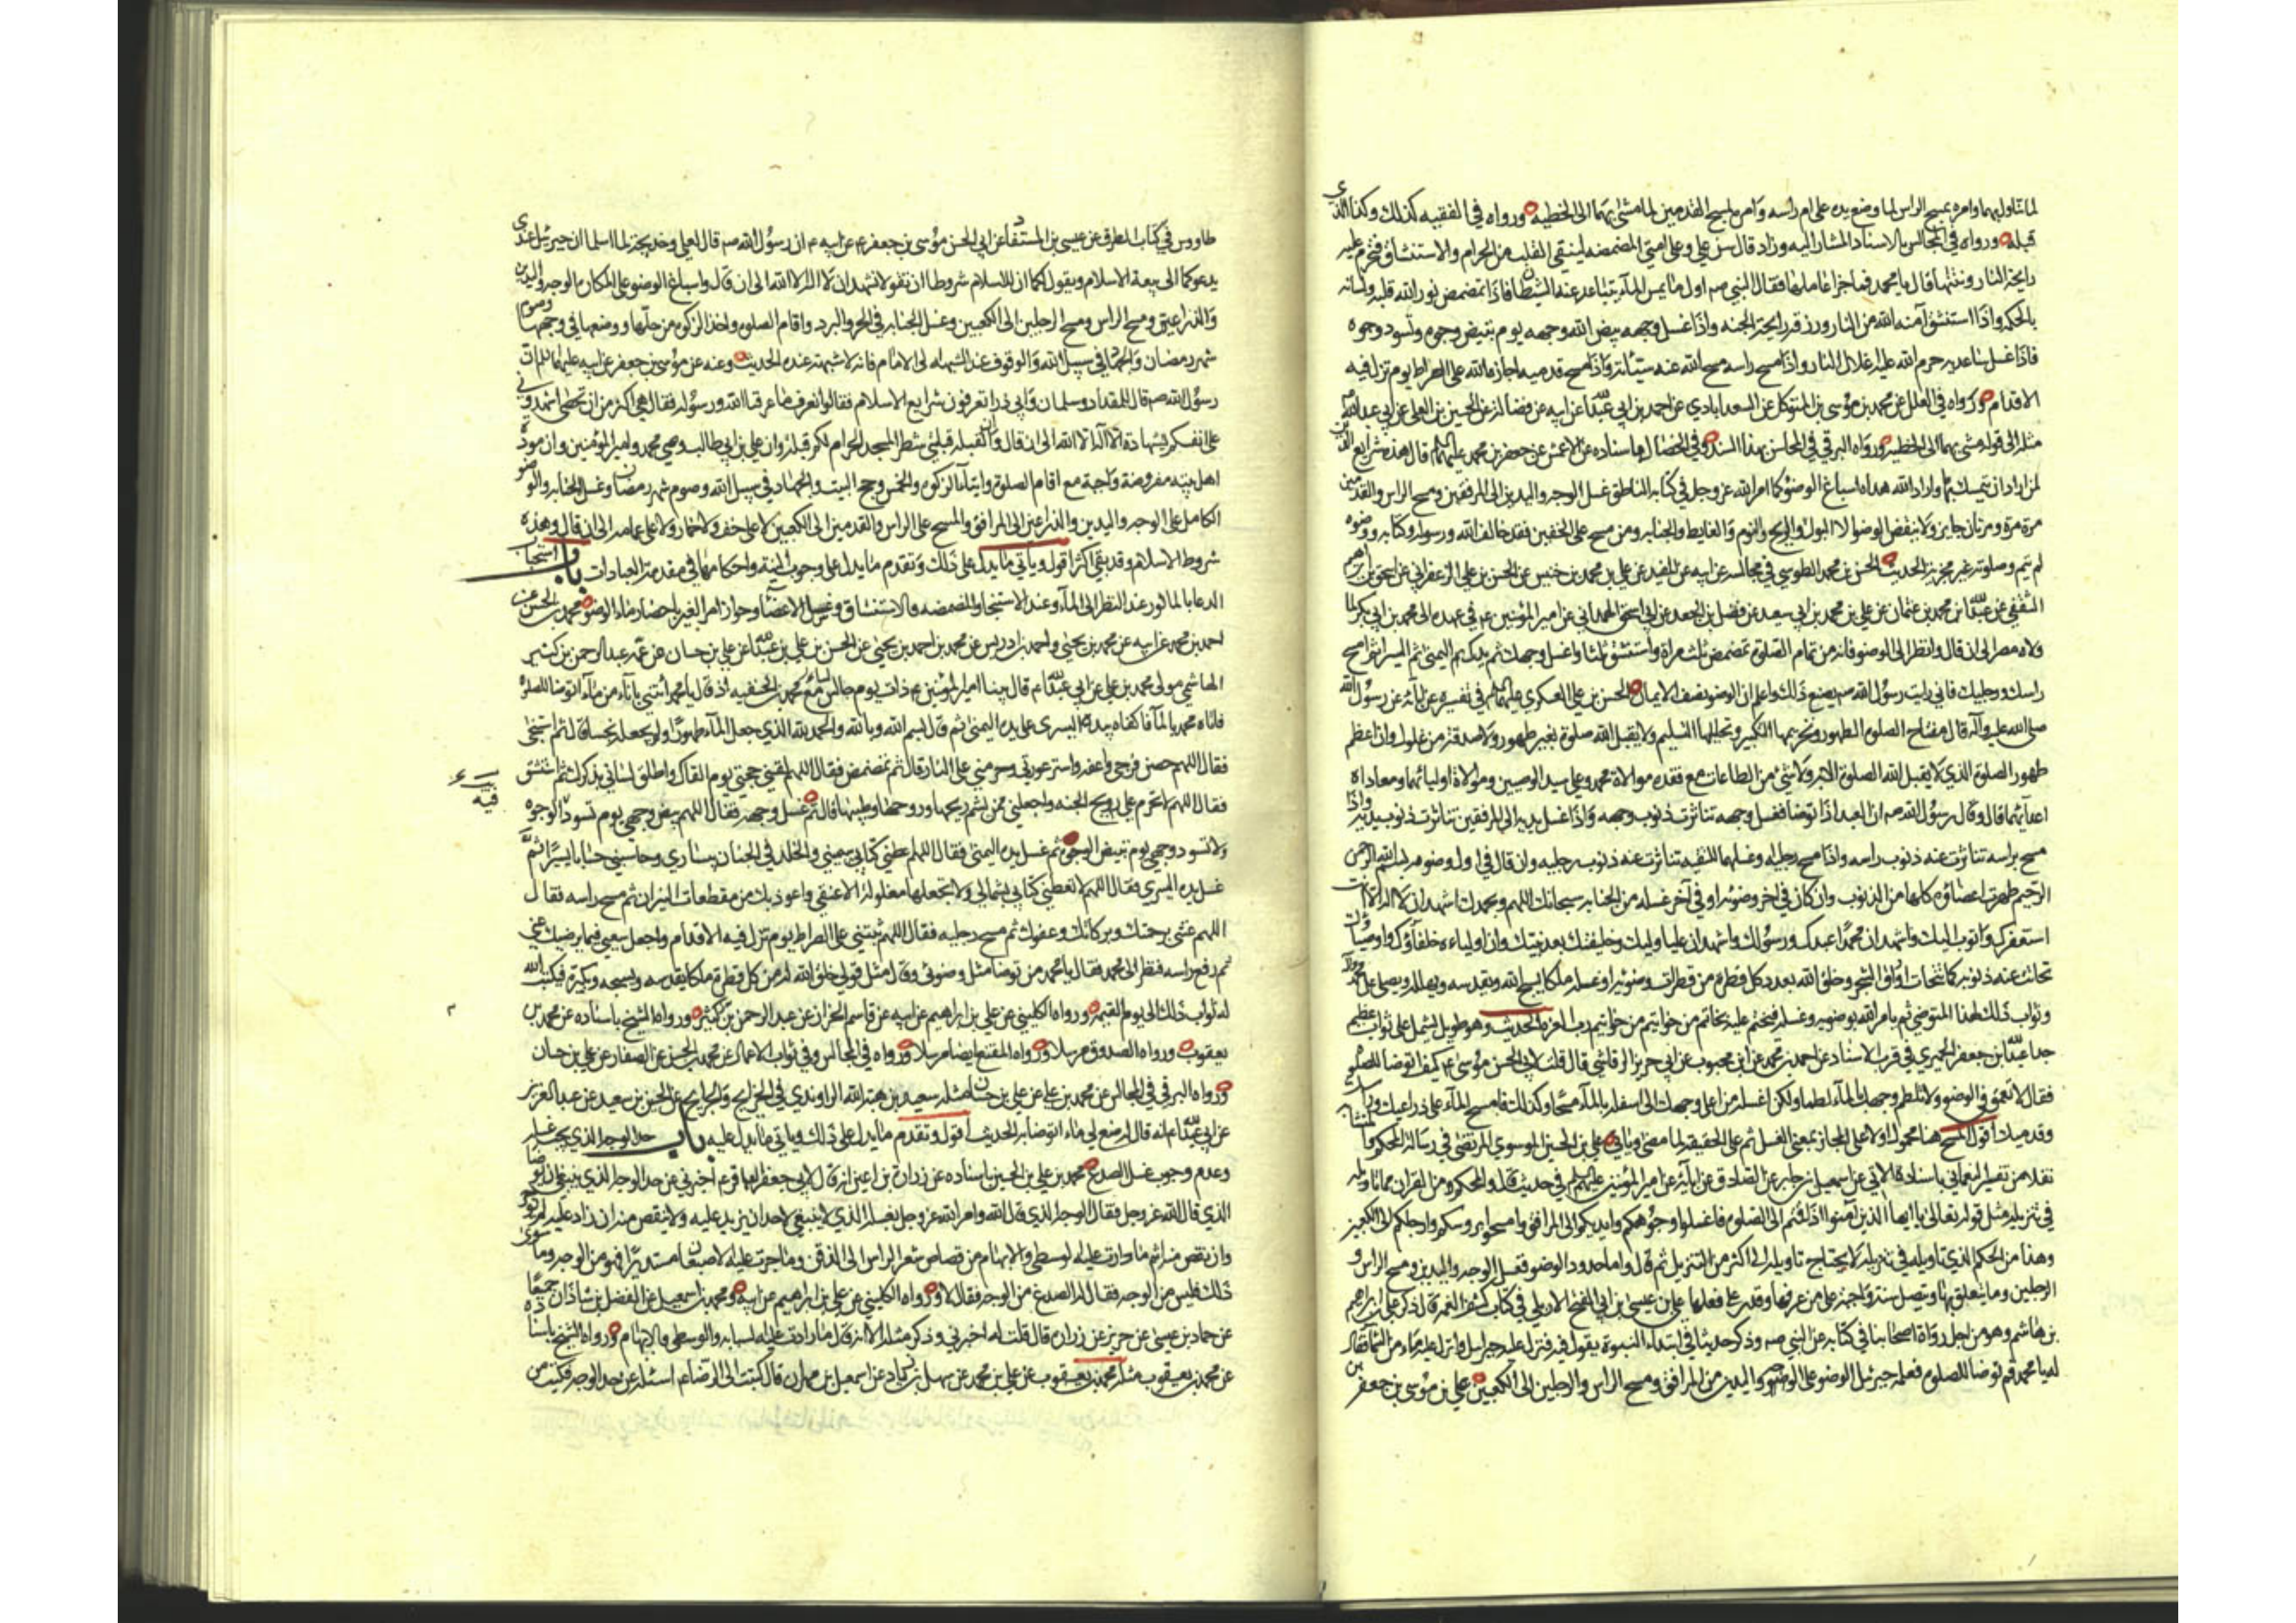 لما تناول بهما وامره بمسح الراس لما وضع يده على ام راسه وامره بمسح القدمين لما مشى بهما الى الخطيه ورواه في الفقيه كذلك وكذا الذي
قبله ورواه في المجالس بالاسناد المشار اليه وزاد قال سن علي وعلى امتي المضمضه لينقي القلب من الحرام والاستنشاق لتحرم عليه
رايحة النار ونتنها قال يا محمد فما جزاء عاملها فقال النبي صم اول ما يمس المآء يتباعد عنه الشيطان فاذا تمضمض نور الله قلبه ولسانه
بالحكمه واذا استنشق آمنه الله من النار ورزقه رايحة الجنه واذا غسل وجهه بيض الله وجهه يوم تبيض وجوه وتسود وجوه
فاذا غسل ساعديه حرم الله عليه اغلال النار واذا مسح راسه مسح الله عنه سيئاته واذا مسح قدميه اجازه الله على الصراط يوم تزل فيه
الاقدام ورواه في العلل عن محمد بن موسى بن المتوكل عن السعدابادي عن احمد بن ابي عبدالله عن ابيه عن فضاله عن الحسين بن ابي العلا عن ابي عبدالله
مثله الى قوله مشى بهما الى الخطيه ورواه البرقي في المحاسن بهذا السند وفي الخصال باسناده عن الاعمش عن جعفر بن محمد عليهما قال هذه شرايع الدين
لمن اراد ان يتمسك بها واراد الله هداه اسباغ الوضو كما امر الله عز وجل في كتابه الناطق غسل الوجه واليدين الى المرفقين ومسح الراس والقدمين
مرة مرة ومرتان جايز ولا ينقض الوضو الا البول والريح والنوم والغايط والجنابه ومن مسح على الخفين فقد خالف الله ورسوله وكتابه ووضوه
لم يتم وصلوته غير مجزيه الحديث الحسن بن محمد الطوسي في مجالسه عن ابيه عن المفيد عن علي بن محمد بن حبيش عن الحسن بن علي الزعفراني عن اسحق بن ابرهيم
الثقفي عن عبدالله بن محمد بن عثمان عن علي بن محمد بن ابي سعيد عن فضل بن الجعد عن ابي اسحق الهمداني عن امير المؤمنين عم في عهده الى محمد بن ابي بكر لما
ولاه مصر الى ان قال وانظر الى الوضو فانه من تمام الصلوة تمضمض ثلث مرات واستنشق ثلثا واغسل وجهك ثم يدك اليمنى ثم اليسرى ثم امسح
راسك ورجليك فاني رايت رسول الله صم يصنع ذلك واعلم ان الوضو نصف الايمان الحسن بن علي العسكري عليهما في تفسيره عن آبائه عن رسول الله
صلى الله عليه وآله قال مفتاح الصلوة الطهور وتحريمها التكبير وتحليلها التسليم ولا يقبل الله صلوة بغير طهور ولا صدقة من غلول وان اعظم
طهور الصلوة الذي لا يقبل الله الصلوة الا به ولا شئ من الطاعات مع فقده موالاة محمد وعلي سيد الوصيين وموالاة اوليائهما ومعاداة
اعدآئهما قال وقال رسول الله صم ان العبد اذا توضا فغسل وجهه تناثرت ذنوب وجهه واذا غسل يديه الى المرفقين تناثرت ذنوب يديه واذا
مسح براسه تناثرت عنه ذنوب راسه واذا مسح رجليه وغسلهما للتقيه تناثرت عنه ذنوب رجليه وان قال في اول وضوه بسم الله الرحمن
الرحيم طهرت اعضاؤه كلها من الذنوب وان كان في اخر وضوئه او في آخر غسله من الجنابه سبحانك اللهم وبحمدك اشهد ان لا اله الا انت
استغفرك واتوب اليك واشهد ان محمدا عبدك ورسولك واشهد ان عليا وليك وخليفتك بعد نبيك وان اولياءه خلفاؤك واوصياؤك
تحاتت عنه ذنوبه كما تتحات اوراق الشجر وخلق الله بعدد كل قطرة من قطرات وضوئه او غسله ملكا يسبح الله ويقدسه ويهلله ويصلي على محمد وآله
وثواب ذلك لهذا المتوضي ثم يامر الله بوضوئه وغسله فيختم عليه بخاتم من خواتيم رب العزه الحديث وهو طويل يشتمل على ثواب عظيم
جدا عبدالله بن جعفر الحميري في قرب الاسناد عن احمد بن محمد عن ابن محبوب عن ابي جرير الرقاشي قال قلت لابي الحسن موسى عم كيف اتوضا للصلوة
فقال لا تعمق في الوضو ولا تلطم وجهك بالمآء لطما ولكن اغسله من اعلى وجهك الى اسفله بالمآء مسحا وكذلك فامسح المآء على ذراعيك وراسك
وقدميك اقول المسح هنا محمول اولا على المجاز بمعنى الغسل ثم على الحقيقه لما مضى وياتي علي بن الحسين الموسوي المرتضى في رسالة المحكم والمتشابه
نقلا من تفسير النعماني باسناده الاتي عن اسمعيل بن جابر عن الصادق عن آبائه عن امير المؤمنين عليهم في حديث قال والمحكم من القران مما تاويله
في تنزيله مثل قوله تعالى يا ايها الذين آمنوا اذا قمتم الى الصلوة فاغسلوا وجوهكم وايديكم الى المرافق وامسحوا برؤسكم وارجلكم الى الكعبين
وهذا من المحكم الذي تاويله في تنزيله لا يحتاج تاويله الى اكثر من التنزيل ثم قال واما حدود الوضو فغسل الوجه واليدين ومسح الراس و
الرجلين وما يتعلق بها ويتصل سنة واجبة على من عرفها وقدر على فعلها علي بن عيسى بن ابي الفتح الاربلي في كتاب كشف الغمه قال ذكر علي بن ابراهيم
بن هاشم وهو من اجل رواة اصحابنا في كتابه عن النبي صم وذكر حديثا في ابتداء النبوة يقول فيه فنزل عليه جبرئيل وانزل عليه ماء من السماء فقال
له يا محمد قم توضا للصلوة فعلمه جبرئيل الوضو على الوجه واليدين من المرافق ومسح الراس والرجلين الى الكعبين علي بن موسى بن جعفر بن
طاووس في كتاب الطرف عن عيسى بن المستفاد عن ابي الحسن موسى بن جعفر عم عن ابيه عم ان رسول الله صم قال لعلي وخديجة لما اسلما ان جبرئيل عندي
يدعوكما الى بيعة الاسلام ويقول لكما ان للاسلام شروطا ان تقولا نشهد ان لا اله الا الله الى ان قال واسباغ الوضو على المكاره الوجه واليدين
والذراعين ومسح الراس ومسح الرجلين الى الكعبين وغسل الجنابه في الحر والبرد واقام الصلوة واخذ الزكوة من حلها ووضعها في وجهها وصوم
شهر رمضان والجهاد في سبيل الله والوقوف عند الشبهه الى الامام فانه لا شبهة عنده الحديث وعنه عن موسى بن جعفر عن ابيه عليهما ان
رسول الله صم قال للمقداد وسلمان وابي ذر اتعرفون شرايع الاسلام فقالوا نعرف ما عرفنا الله ورسوله فقال هي اكثر من ان تحصى اشهدوني
على انفسكم بشهادة ان لا اله الا الله الى ان قال وان القبله قبلتي شطر المسجد الحرام لكم قبلة وان علي بن ابي طالب وصي محمد وامير المؤمنين وان مودة
اهل بيته مفروضة واجبة مع اقام الصلوة وايتآء الزكوة والخمس وحج البيت والجهاد في سبيل الله وصوم شهر رمضان وغسل الجنابه والوضو
الكامل على الوجه واليدين والذراعين الى المرافق والمسح على الراس والقدمين الى الكعبين لا على خف ولا خمار ولا على عمامه الى ان قال وهذه
شروط الاسلام وقد بقي اكثر اقول وياتي ما يدل على ذلك وتقدم ما يدل على وجوب النية واحكامها في مقدمة العبادات باب استحباب
الدعا بالماثور عند النظر الى المآء وعند الاستنجا والمضمضه والاستنشاق وغسل الاعضا وجواز امر الغير باحضار ماء الوضو محمد بن الحسن عن
احمد بن محمد عن ابيه عن محمد بن يحيى واحمد بن ادريس عن محمد بن احمد بن يحيى عن الحسن بن علي بن عبدالله عن علي بن حسان عن عمه عبدالرحمن بن كثير
الهاشمي مولى محمد بن علي عن ابي عبدالله عم قال بينا امير المؤمنين عم ذات يوم جالس مع محمد بن الحنفيه اذ قال يا محمد ائتني باناء من مآء اتوضا للصلوة
فاتاه محمد بالمآء فاكفاه بيده اليسرى على يده اليمنى ثم قال بسم الله وبالله والحمد لله الذي جعل المآء طهورا ولم يجعله نجسا قال ثم استنجى
فقال اللهم حصن فرجي واعفه واستر عورتي وحرمني على النار قال ثم تمضمض فقال اللهم لقني حجتي يوم القاك واطلق لساني بذكرك ثم استنشق
فقال اللهم لا تحرم علي ريح الجنه واجعلني ممن يشم ريحها وروحها وطيبها قال ثم غسل وجهه فقال اللهم بيض وجهي يوم تسود الوجوه
فيه
ولا تسود وجهي يوم تبيض الوجوه ثم غسل يده اليمنى فقال اللهم اعطني كتابي بيميني والخلد في الجنان بيساري وحاسبني حسابا يسيرا ثم
غسل يده اليسرى فقال اللهم لا تعطني كتابي بشمالي ولا تجعلها مغلولة الى عنقي واعوذ بك من مقطعات النيران ثم مسح راسه فقال
اللهم غشني برحمتك وبركاتك وعفوك ثم مسح رجليه فقال اللهم ثبتني على الصراط يوم تزل فيه الاقدام واجعل سعيي فيما يرضيك عني
ثم رفع راسه فنظر الى محمد فقال يا محمد من توضا مثل وضوئي وقال مثل قولي خلق الله له من كل قطرة ملكا يقدسه ويسبحه ويكبره فيكتب الله
له ثواب ذلك الى يوم القيمه ورواه الكليني عن علي بن ابراهيم عن ابيه عن قاسم الخزاز عن عبدالرحمن بن كثير ورواه الشيخ باسناده عن محمد بن
يعقوب ورواه الصدوق مرسلا ورواه المقنع ايضا مرسلا ورواه في المجالس وفي ثواب الاعمال عن محمد بن الحسن عن الصفار عن علي بن حسان
ورواه البرقي في المجالس عن محمد بن علي عن علي بن حسان مثله سعيد بن هبة الله الراوندي في الخرايج والجرايح عن الحسن بن سعيد عن عبدالعزيز
عن ابي عبدالله عم انه قال له ضع لي ماء اتوضا به الحديث اقول وتقدم ما يدل على ذلك وياتي ما يدل عليه باب حد الوجه الذي يجب غسله
وعدم وجوب غسل الصدغ محمد بن علي بن الحسين باسناده عن زرارة بن اعين انه قال لابي جعفر الباقر عم اخبرني عن حد الوجه الذي ينبغي ان يوضا
الذي قال الله عز وجل فقال الوجه الذي قال الله وامر الله عز وجل بغسله الذي لا ينبغي لاحد ان يزيد عليه ولا ينقص منه ان زاد عليه لم يوجر
وان نقص منه اثم ما دارت عليه الوسطى والابهام من قصاص شعر الراس الى الذقن وما جرت عليه الاصبعان مستديرا فهو من الوجه وما سوى
ذلك فليس من الوجه فقال له الصدغ من الوجه فقال لا ورواه الكليني عن علي بن ابراهيم عن ابيه ومحمد بن اسمعيل عن الفضل بن شاذان جميعا
عن حماد بن عيسى عن حريز عن زراره قال قلت له اخبرني وذكر مثله الا انه قال ما دارت عليه السبابه والوسطى والابهام ورواه الشيخ باسناده
عن محمد بن يعقوب مثله محمد بن يعقوب عن علي بن محمد عن سهل بن زياد عن اسمعيل بن مهران قال كتبت الى الرضا عم اسئله عن حد الوجه فكتب من